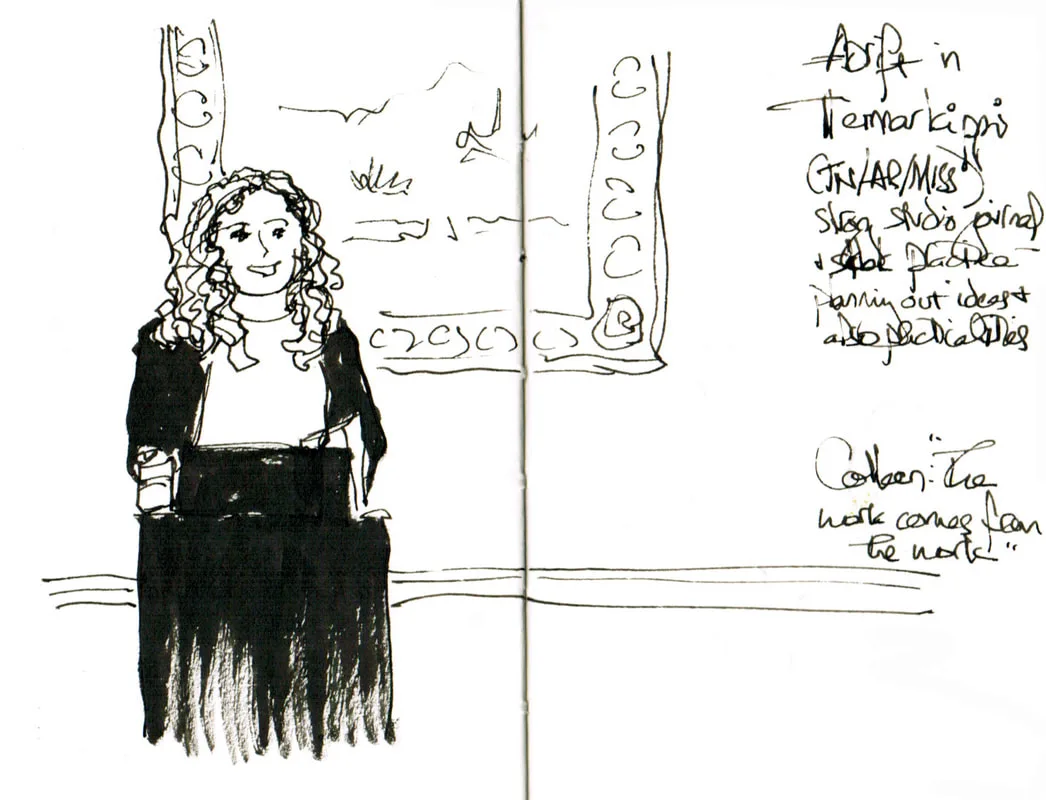 Adrift in
Temarkippi
(TN/AR/MISS)
strong studio journal
+ sketchbook practice -
planning out ideas +
also practicalities
Colleen: "The
work comes from
the work"